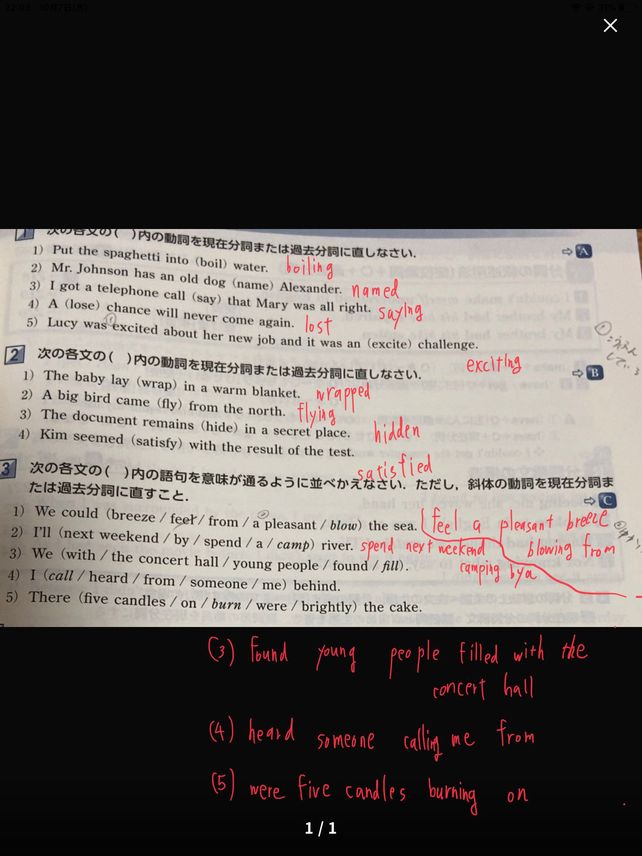 次の各文の( )内の動詞を現在分詞または過去分詞に直しなさい. ⇨ A
1) Put the spaghetti into (boil) water. boiling
2) Mr. Johnson has an old dog (name) Alexander. named
3) I got a telephone call (say) that Mary was all right. saying
4) A (lose) chance will never come again. lost
5) Lucy was excited about her new job and it was an (excite) challenge.
exciting
2 次の各文の( )内の動詞を現在分詞または過去分詞に直しなさい. ⇨ B
1) The baby lay (wrap) in a warm blanket. wrapped
2) A big bird came (fly) from the north. flying
3) The document remains (hide) in a secret place. hidden
4) Kim seemed (satisfy) with the result of the test.
satisfied
3 次の各文の( )内の語句を意味が通るように並べかえなさい. ただし, 斜体の動詞を現在分詞ま
たは過去分詞に直すこと. ⇨ C
1) We could (breeze / feel / from / a pleasant / blow) the sea. feel a pleasant breeze
blowing from
2) I'll (next weekend / by / spend / a / camp) river. spend next weekend
camping by a
3) We (with / the concert hall / young people / found / fill).
4) I (call / heard / from / someone / me) behind.
5) There (five candles / on / burn / were / brightly) the cake.
(3) found young people filled with the
concert hall
(4) heard someone calling me from
(5) were five candles burning on
1 / 1